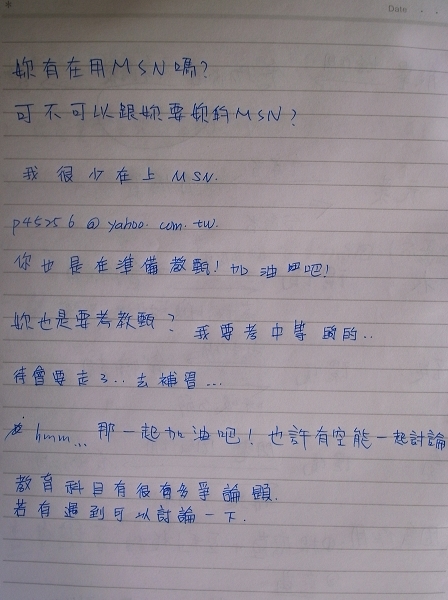 Date
妳有在用MSN嗎?
可不可以跟妳要妳的MSN?
我很少在上MSN.
@yahoo.com.tw.
你也是在準備教甄!加油吧!
妳也是要考教甄? 我要考中等的..
待會要走了..去補習...
hmm... 那一起加油吧!也許有空能一起討論
教育科目有很有多爭論題.
若有遇到可以討論一下.